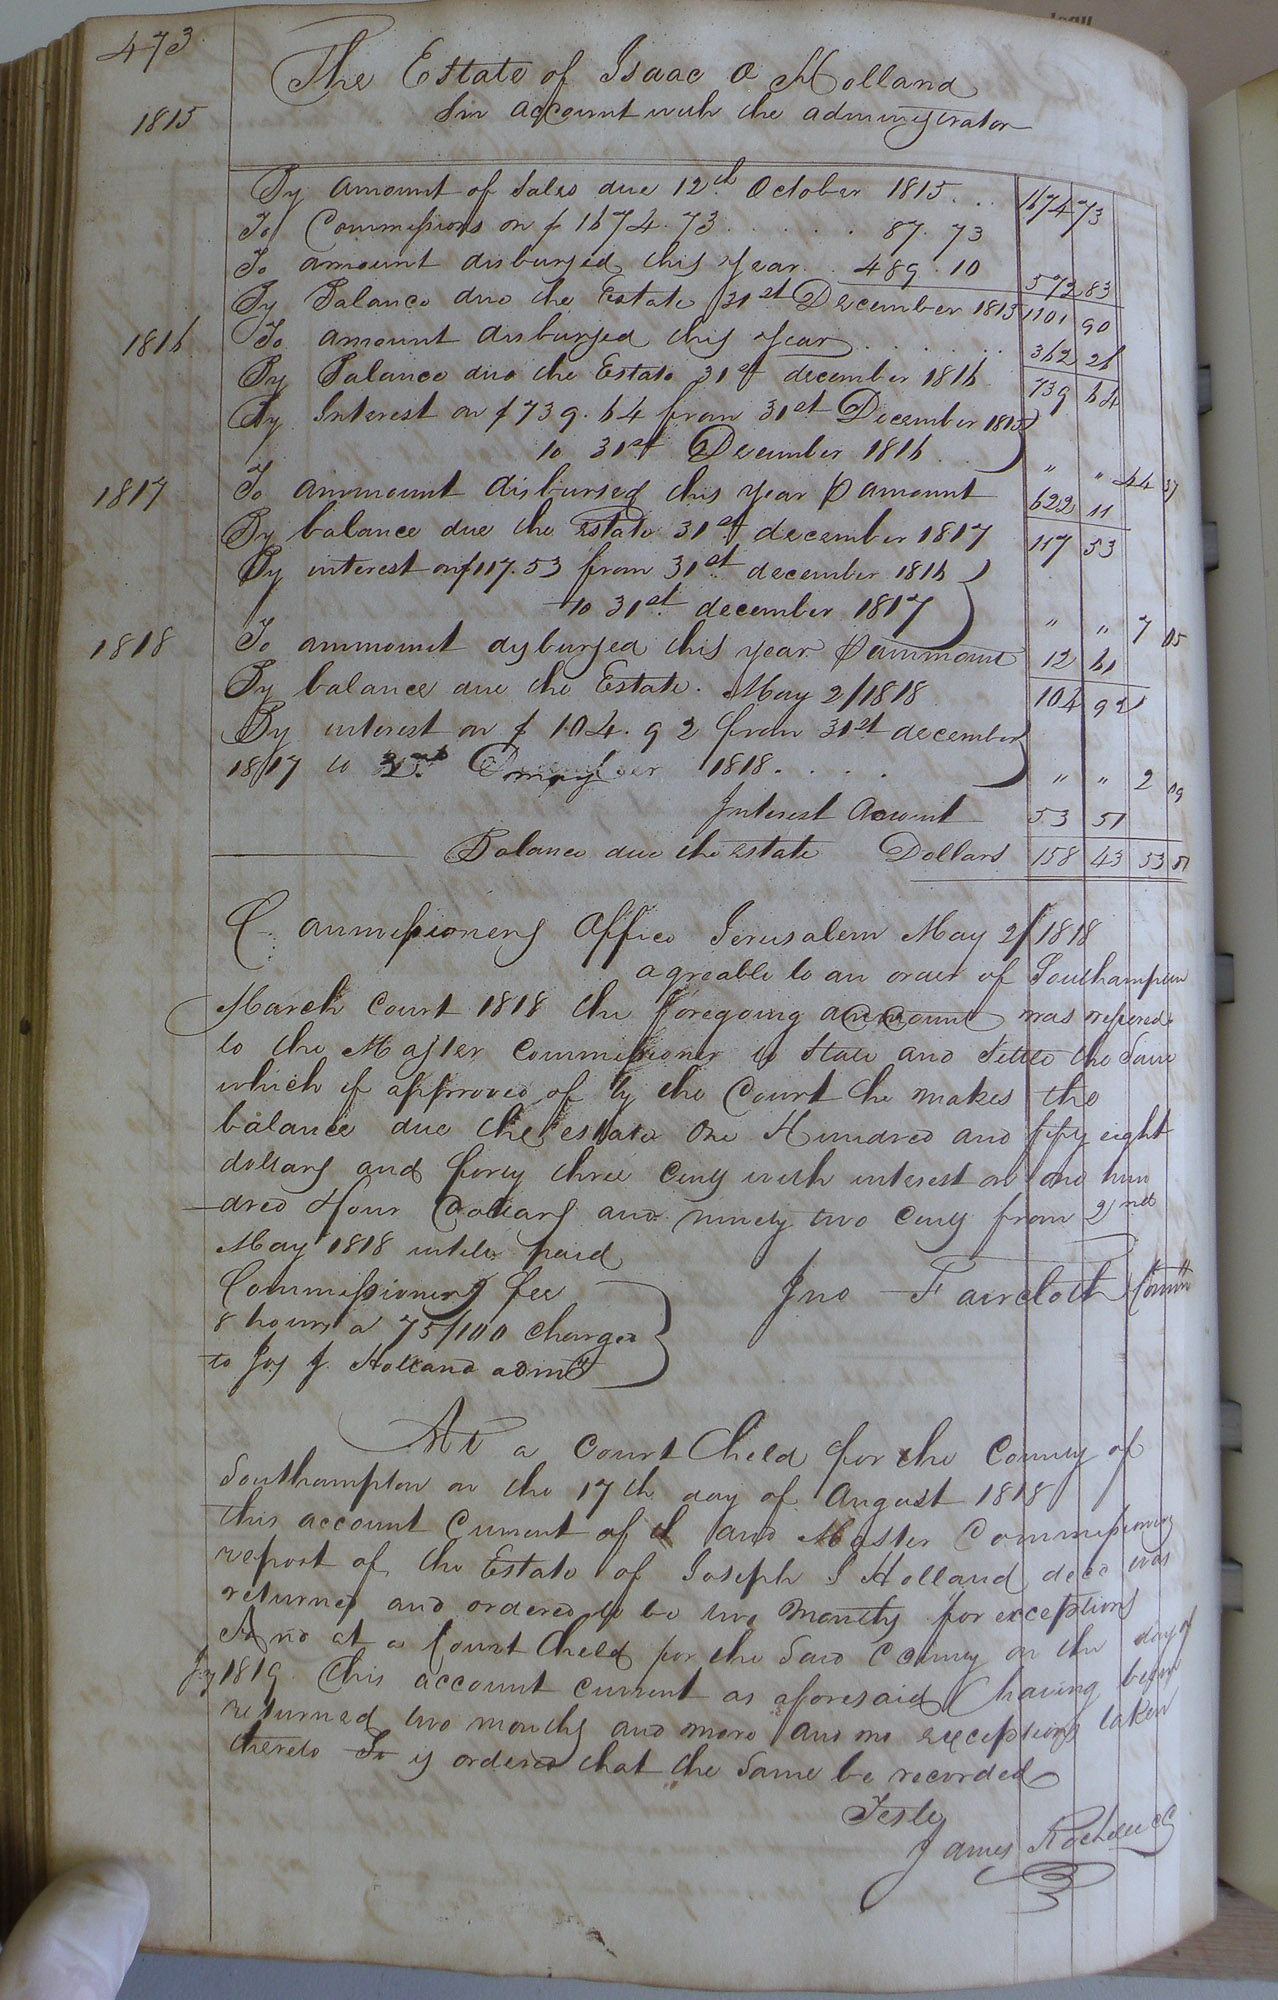 473
The Estate of Isaac O Holland
1815 In account with the administrator
By amount of Sales due 12th October 1815 . . 1674 73
To Commissions on $ 1674.73 . . . . . . 87. 73
To amount disbursed this year . . 489. 10 572 83
By Balance due the Estate 31st December 1815 1101 90
1816 To amount disbursed this year . . . . . . 362 26
By Balance due the Estate 31st december 1816 739 64
By Interest on $739.64 from 31st December 1815
to 31st December 1816 . " " 44 37
1817 To ammount disbursed this year P amount 622 11
By balance due the Estate 31st december 1817 117 53
By interest on $117.53 from 31st december 1816
to 31st december 1817 " " 7 05
1818 To ammount disbursed this year P ammount 12 61
By balance due the Estate. May 2/1818 104 92
By interest on $ 104.92 from 31st december
1817 to 2nd may 1818. . . . . " " 2 09
Interest Account 53 51
Balance due the Estate Dollars 158 43 53 51
Commissioners Office Jerusalem May 2/1818
agreable to an order of Southampton
March Court 1818 the foregoing account was refered
to the Master Commissioner to State and Settle the Same
which if approved of by the Court he makes the
balance due the estate One Hundred and fifty eight
dollars and forty three Cents with interest on one hun
dred Four Dollars and ninety two Cents from 2nd
May 1818 untill paid
Commissioners fee Jno Faircloth Comm
8 hours a 75/100 charged
to Jos J. Holland admr
At a Court held for the County of
Southampton on the 17th day of August 1818
this account Current of and Master Commissioners
report of the Estate of Joseph J Holland decd was
returned and ordered to be two Months for exceptions
And at a Court held for the Said County on the day of
1819 this account current as aforesaid having been
returned two months and more and no exceptions taken
thereto is ordered that the Same be recorded
Teste
James Rochelle CC